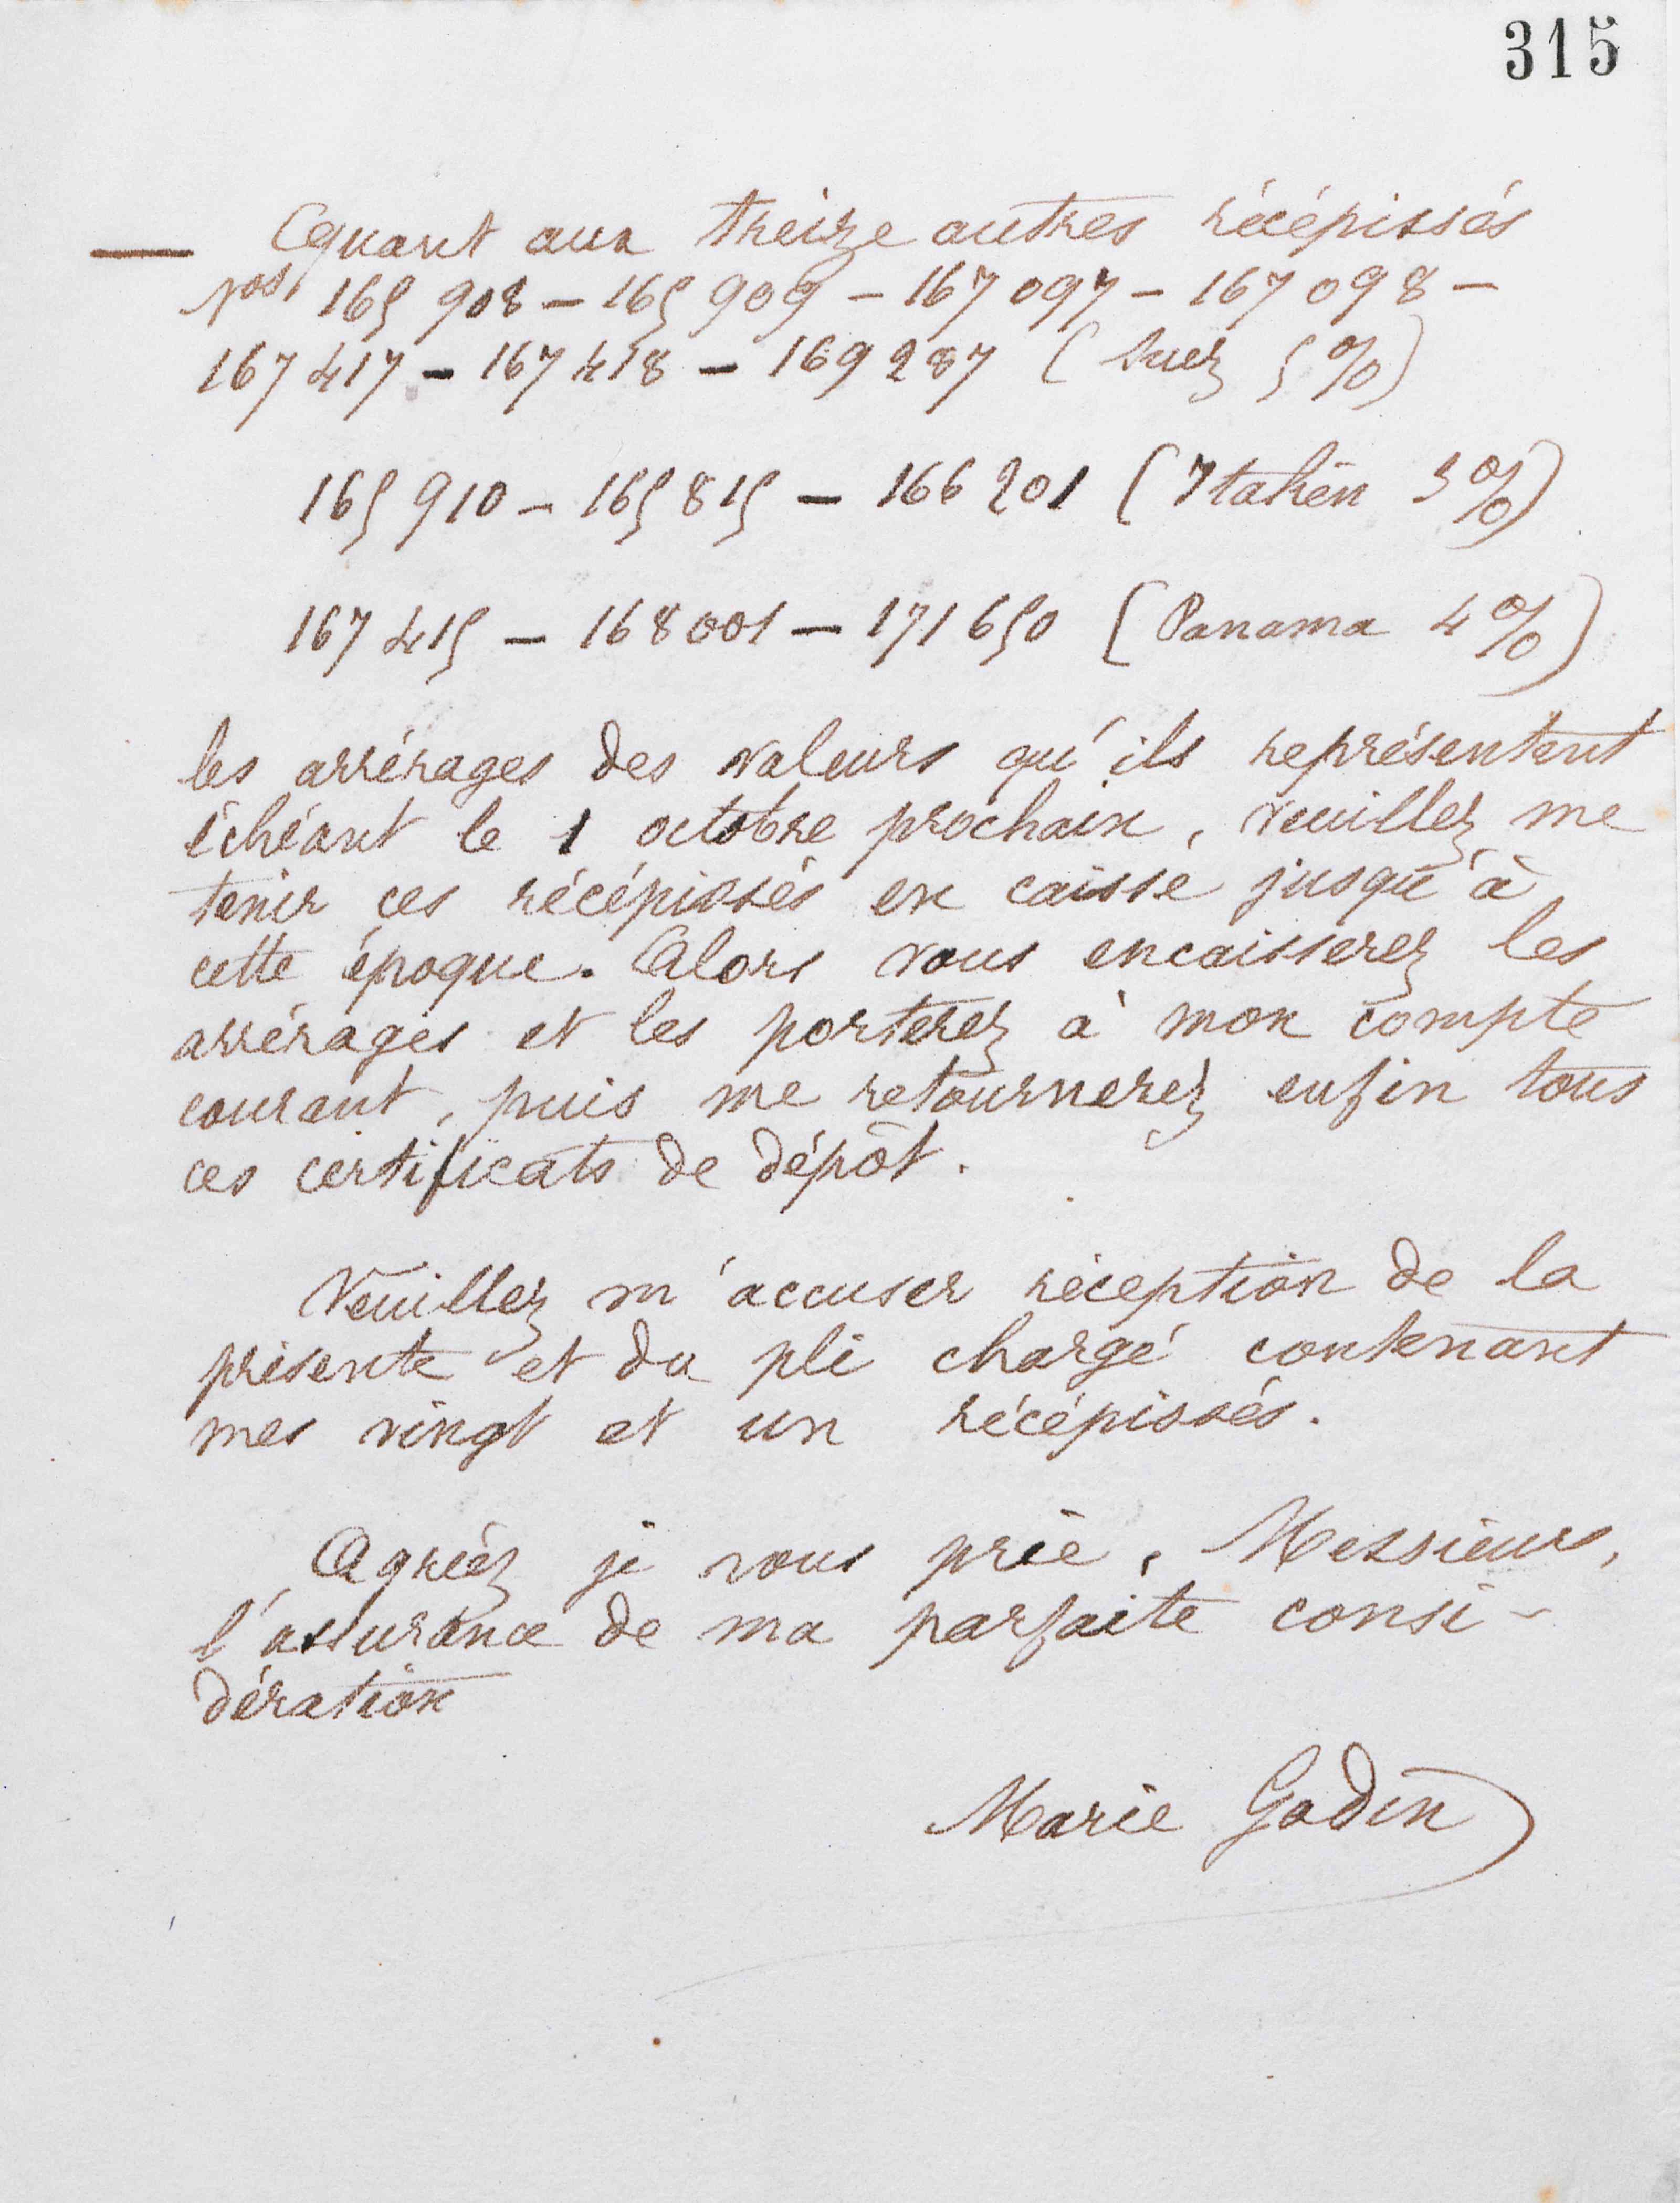 315
— Quant aux treize autres récépissés
Nos 165 908 – 165 909 – 167 097 – 167 098 –
167 417 – 167 418 – 169 287 (Suez 5 %)
165 910 – 165 815 – 166 201 (Italien 3 %)
167 415 – 168 001 – 171 650 (Panama 4 %)
les arrérages des valeurs qu'ils représentent
échéant le 1 octobre prochain, veuillez me
tenir ces récépissés en caisse jusqu'à
cette époque. Alors vous encaisserez les
arrérages et les porterez à mon compte
courant, puis me retournerez enfin tous
ces certificats de dépôt.
Veuillez m'accuser réception de la
présente et du pli chargé contenant
mes vingt et un récépissés.
Agréez je vous prie, Messieurs,
l'assurance de ma parfaite consi-
dération
Marie Godin